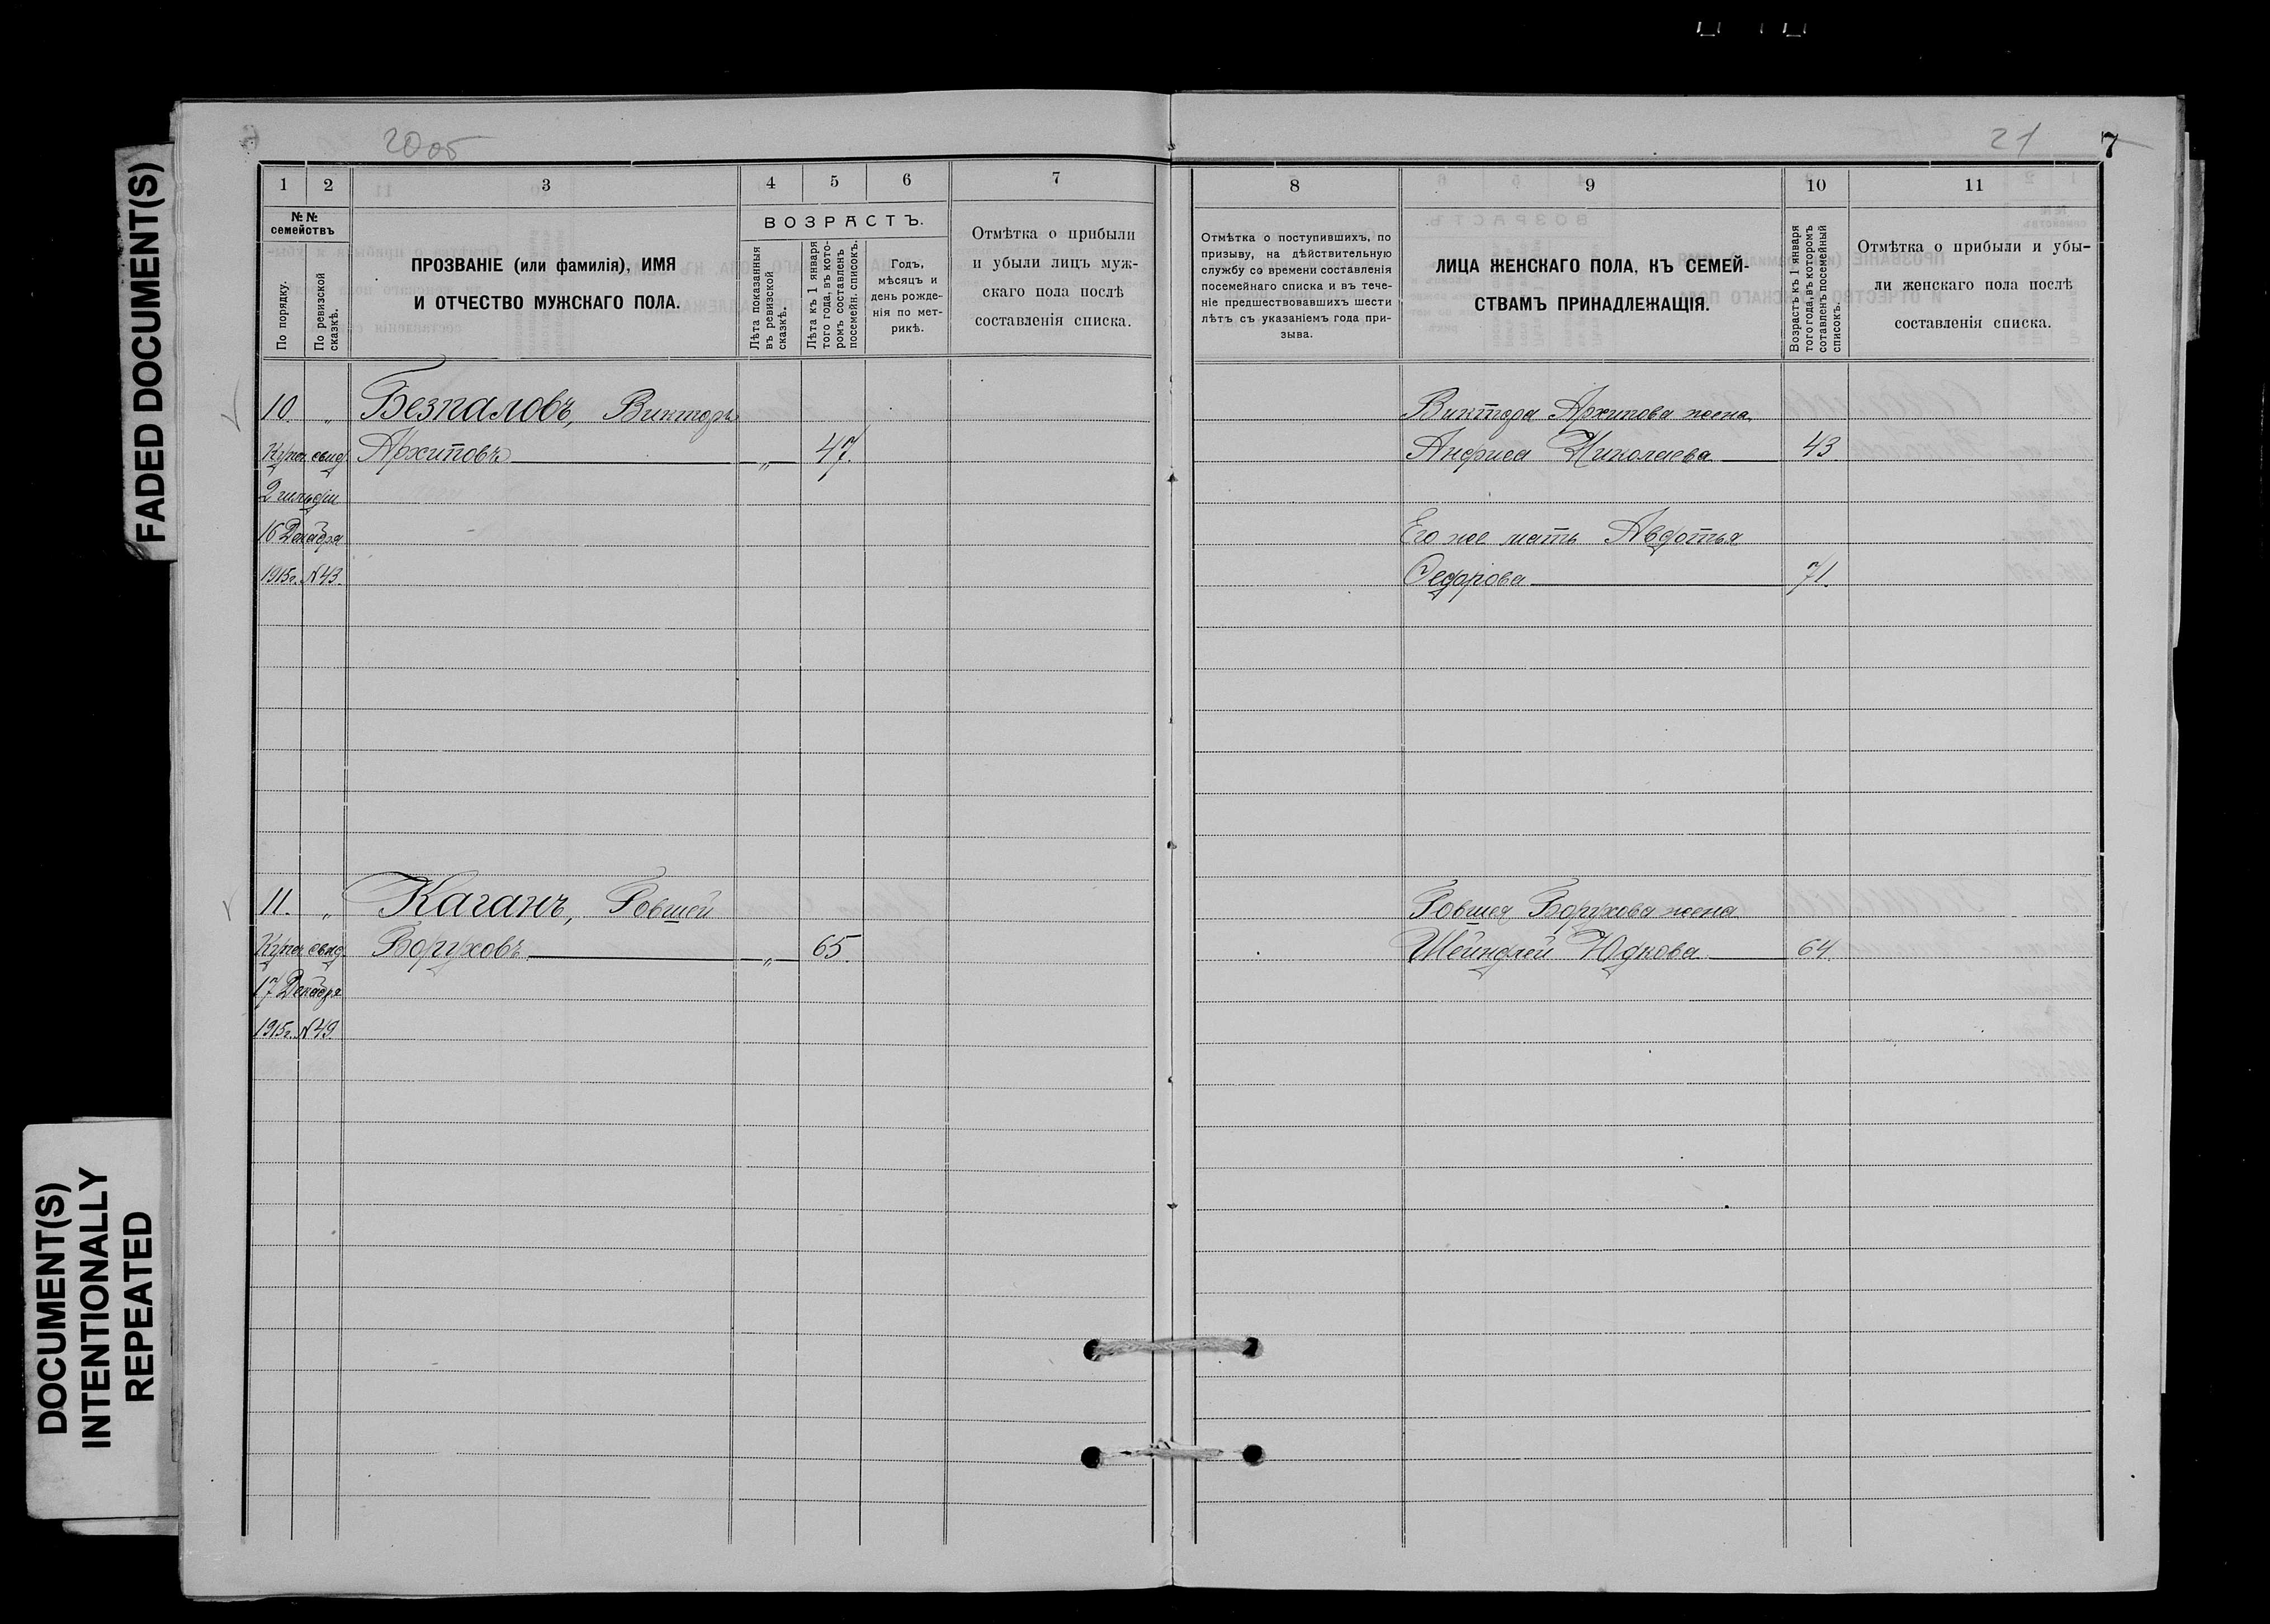 FADED DOCUMENT(S)
DOCUMENT(S)
INTENTIONALLY
REPEATED
20об
21
7
1 2 3 4 5 6 7
№ №
семействъ
По порядку.
По ревизской
сказкѣ.
ПРОЗВАНІЕ (или фамилія), ИМЯ
И ОТЧЕСТВО МУЖСКАГО ПОЛА.
ВОЗРАСТЪ.
Лѣта показанныя
въ ревизской
сказкѣ.
Лѣта къ 1 января
того года, въ кото-
ромъ составленъ
посемейн. списокъ.
Годъ,
мѣсяцъ и
день рожде-
нія по мет-
рикѣ.
Отмѣтка о прибыли
и убыли лицъ муж-
скаго пола послѣ
составленія списка.
10. „ Безпаловъ, Викторъ
Купеч. свид. Архиповъ „ 47.
2 гильдіи
16 Декабря
1915г. №43.
11. „ Каганъ, Говшей
Купеч. свид. Боруховъ „ 65.
17 Декабря
1915г. №49.
8 9 10 11
Отмѣтка о поступившихъ, по
призыву, на дѣйствительную
службу со времени составленія
посемейнаго списка и въ тече-
ніе предшествовавшихъ шести
лѣтъ съ указаніемъ года при-
зыва.
ЛИЦА ЖЕНСКАГО ПОЛА, КЪ СЕМЕЙ-
СТВАМЪ ПРИНАДЛЕЖАЩІЯ.
Возрастъ къ 1 января
того года, въ которомъ
составленъ посемейный
списокъ.
Отмѣтка о прибыли и убы-
ли женскаго пола послѣ
составленія списка.
Виктора Архипова жена
Анфиса Николаева 43.
Его же мать Авдотья
Федорова 71.
Говшея Борухова жена
Шейндлей Юдкова 64.